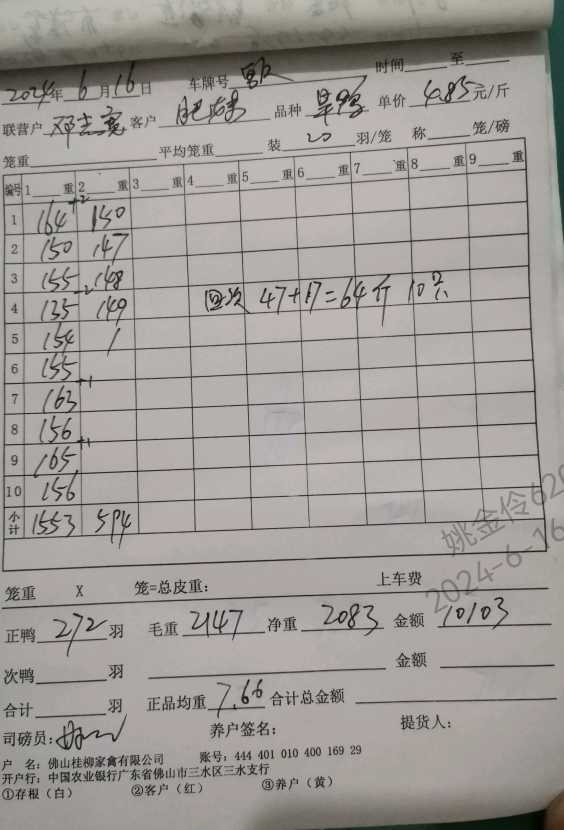 2024年 6 月 16 日 车牌号 时间 至
联营户 邓 客户 肥 品种 单价 4.85 元/斤
笼重 平均笼重 装 20 羽/笼 称 笼/磅
编号 1 重 2 重 3 重 4 重 5 重 6 重 7 重 8 重 9 重
1 164 +2 150
2 150 147
3 155 148
4 135 -2 149 回次 47+17=64斤 10只
5 154 1
6 155
7 163 +1
8 156
9 165 +1
10 156
小计 1553 594
姚金伶620
2024-6-16
笼重 X 笼=总皮重: 上车费
正鸭 272 羽 毛重 2147 净重 2083 金额 10103
次鸭 羽 金额
合计 羽 正品均重 7.66 合计总金额
司磅员: 养户签名: 提货人:
户 名: 佛山桂柳家禽有限公司 账号: 444 401 010 400 169 29
开户行: 中国农业银行广东省佛山市三水区三水支行
①存根（白） ②客户（红） ③养户（黄）